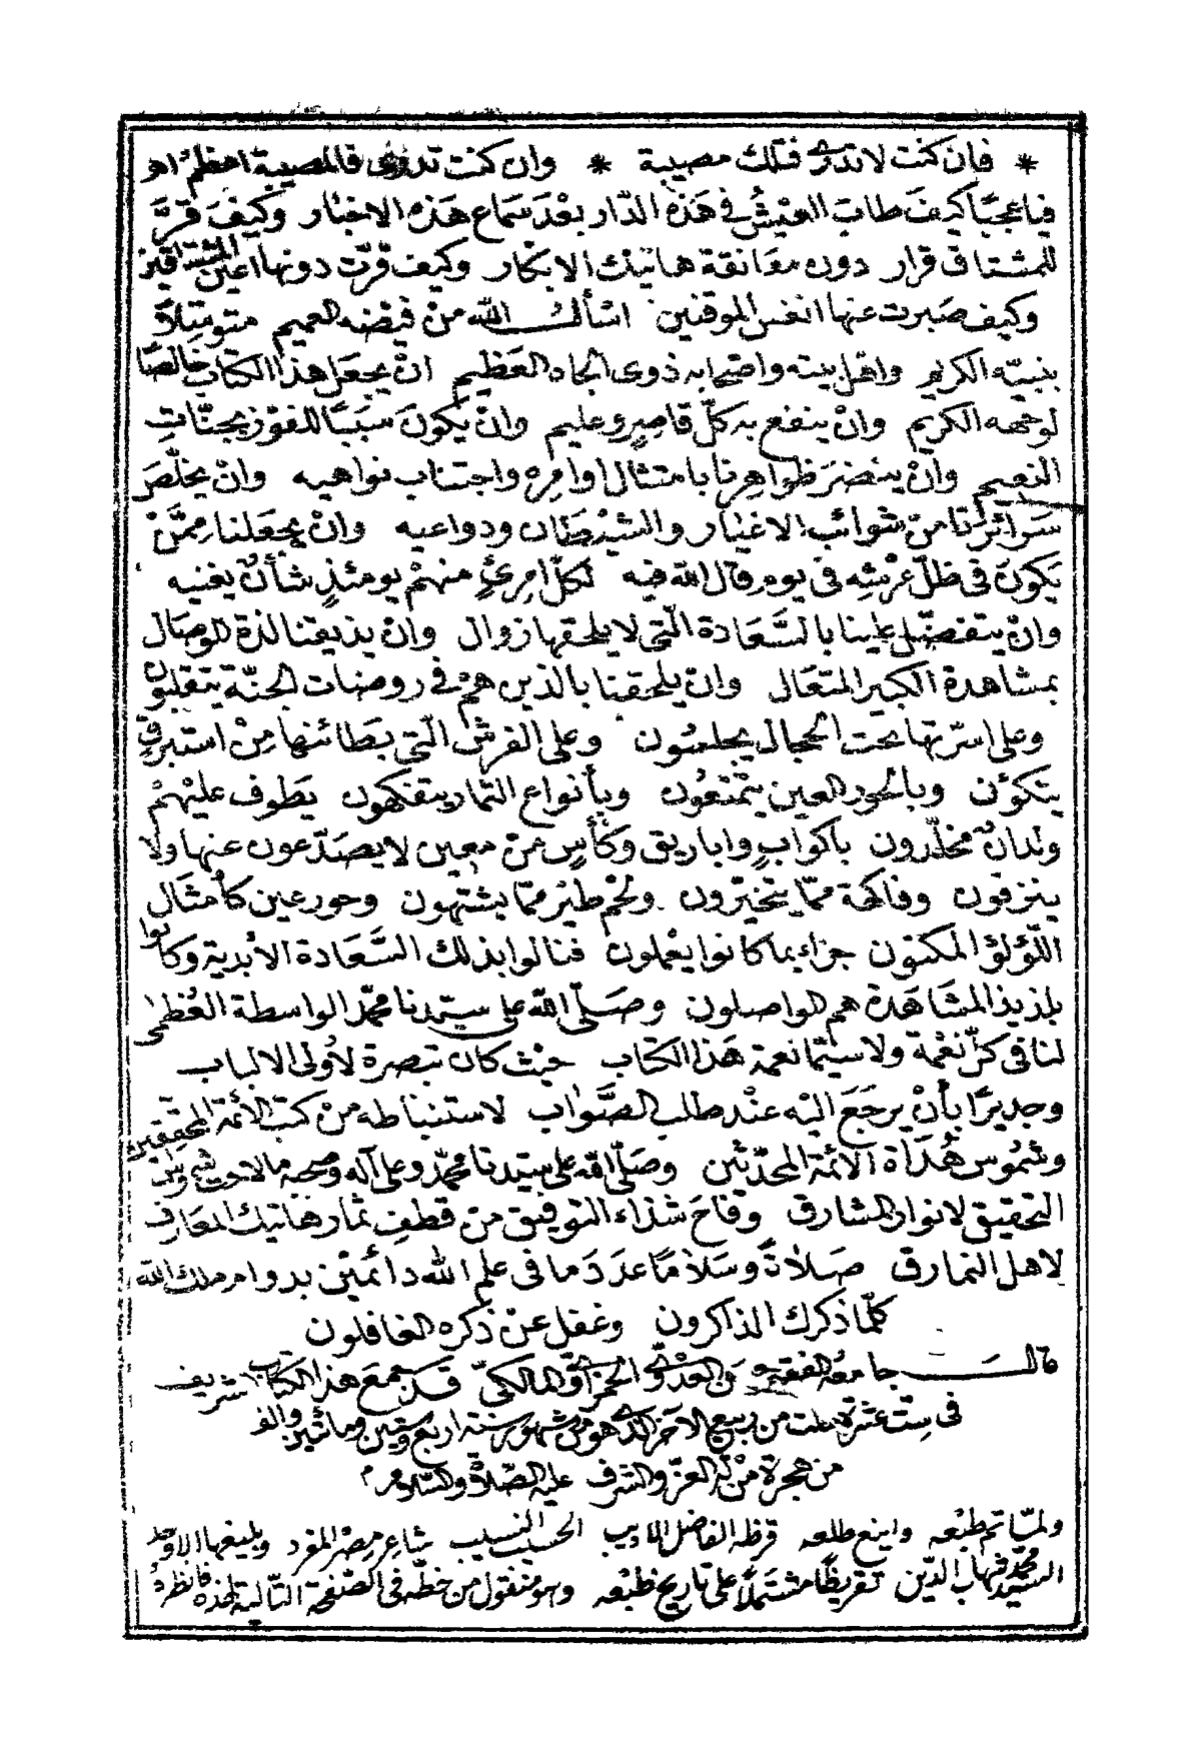 * فان كنت لا تدرى فتلك مصيبة * وان كنت تدرى فالمصيبة اعظم اهـ
فيا عجبًا كيفَ طابَ العيْشُ فى هَذه الدّار بعْدَ سَماع هَذه الاخبار وكيفَ قرَّ
للمشتاق قرار دون معَانقة هاتيك الابكار وكيف قرّت دونها اعين المشتاقين
وكيف صَبرت عنها انفس الموقنين اسْأل الله منْ فيْضه العميم متوسّلاً
بنبيّه الكريم واهْل بيته واصْحابه ذوى الجاه العَظيم انْ يجعَل هذا الكتاب خالصًا
لوجهه الكريم وانْ ينفع به كلّ قاصِرٍ وعليم وانْ يكونَ سَببًا للفوْز بجنّاتِ
النعيم وانْ ينضرَ ظواهِرنا بامتثال اوامِره واجتناب نواهيه وانْ يخلّصَ
سَرائرنا منْ شوائب الاغيار والشيْطان ودواعيه وانْ يجعَلنا ممَّنْ
يَكونَ فى ظلّ عرْشِه فى يوم قال الله فيه لكلّ امرِئٍ منهمْ يومئذٍ شأنٌ يغنيه
وانْ يتفضّل علينا بالسَّعَادة الّتى لا يلحقها زوال وانْ يذيقنا لذة الوصَال
بمشاهدة الكبير المتعَال وانْ يلحقنا بالذين همْ فى روضات الجنّة يتقلبون
وعلى اسرّتها تحت الحجال يجلسُون وعلى الفرش الّتى بَطائنها مِنْ استبرق
يتكؤن وبالحور العين يتمْتعُون وبأنواع الثمار يتفكهون يَطوف عليْهمْ
ولدانٌ مخلّدون باكوابٍ واباريق وكأسٍ منْ معين لا يصَدّعون عنها ولا
ينزفون وفاكهة ممّا يتخيّرون ولحْم طيْر ممّا يشتهون وحور عين كأمثَال
اللّؤلؤ المكنوْن جزاء بما كانوا يعْملون فنالوا بذلك السَّعَادة الأبدية وكانوا
بلذيذ المشَاهَدة هم الواصلون وصَلّى الله على سيّدنا محمّد الواسطة العُظمى
لنا فى كلّ نعْمة ولا سيّما نعمة هَذا الكتاب حيْث كان تبصرة لأولى الالباب
وجديرًا بأنْ يرجَعَ اليْه عنْد طلب الصَّوَاب لاستنباطه منْ كتب الأئمة المحققين
وشمُوس هُدَاة الأئمة المحدّثين وصَلّى الله على سيّدنا محمّد وعلى آله وصحبه ما لاحت شموس
التحقيق لانوار المشارق وفاحَ شذاء التوفيق منْ قطفِ ثمار هاتيك المعَارف
لاهل النمارق صَلاةً وسَلامًا عدَدَ ما فى علم الله دائمَيْن بدوام ملك الله
كلّما ذكرك الذاكرون وغفل عنْ ذكره الغافلون
قالَ جامعُه الفقير العدْوىّ الحمْزاوىّ المالكىّ قدْ جمعَ هَذا الكتاب الشريف
فى ستّ عشرة خلت من ربيع الآخر الذى هو منْ شهور سنة اربع وستين ومائتين والف
من هجرة منْ له العزّ والشرف عليه الصّلاة والسّلام م
ولمّا تم طبْعه واينع طلعه قرظه الفاضل الاديب الحسيب النسيب شاعر مِصْر المفرد وبليغها الاوحد
السيّد محمّد شهاب الدّين تقريظًا مشتملاً على تاريخ طبْعه وهو منقول من خطّه فى الصّفحة التّالية لهذه فانظره